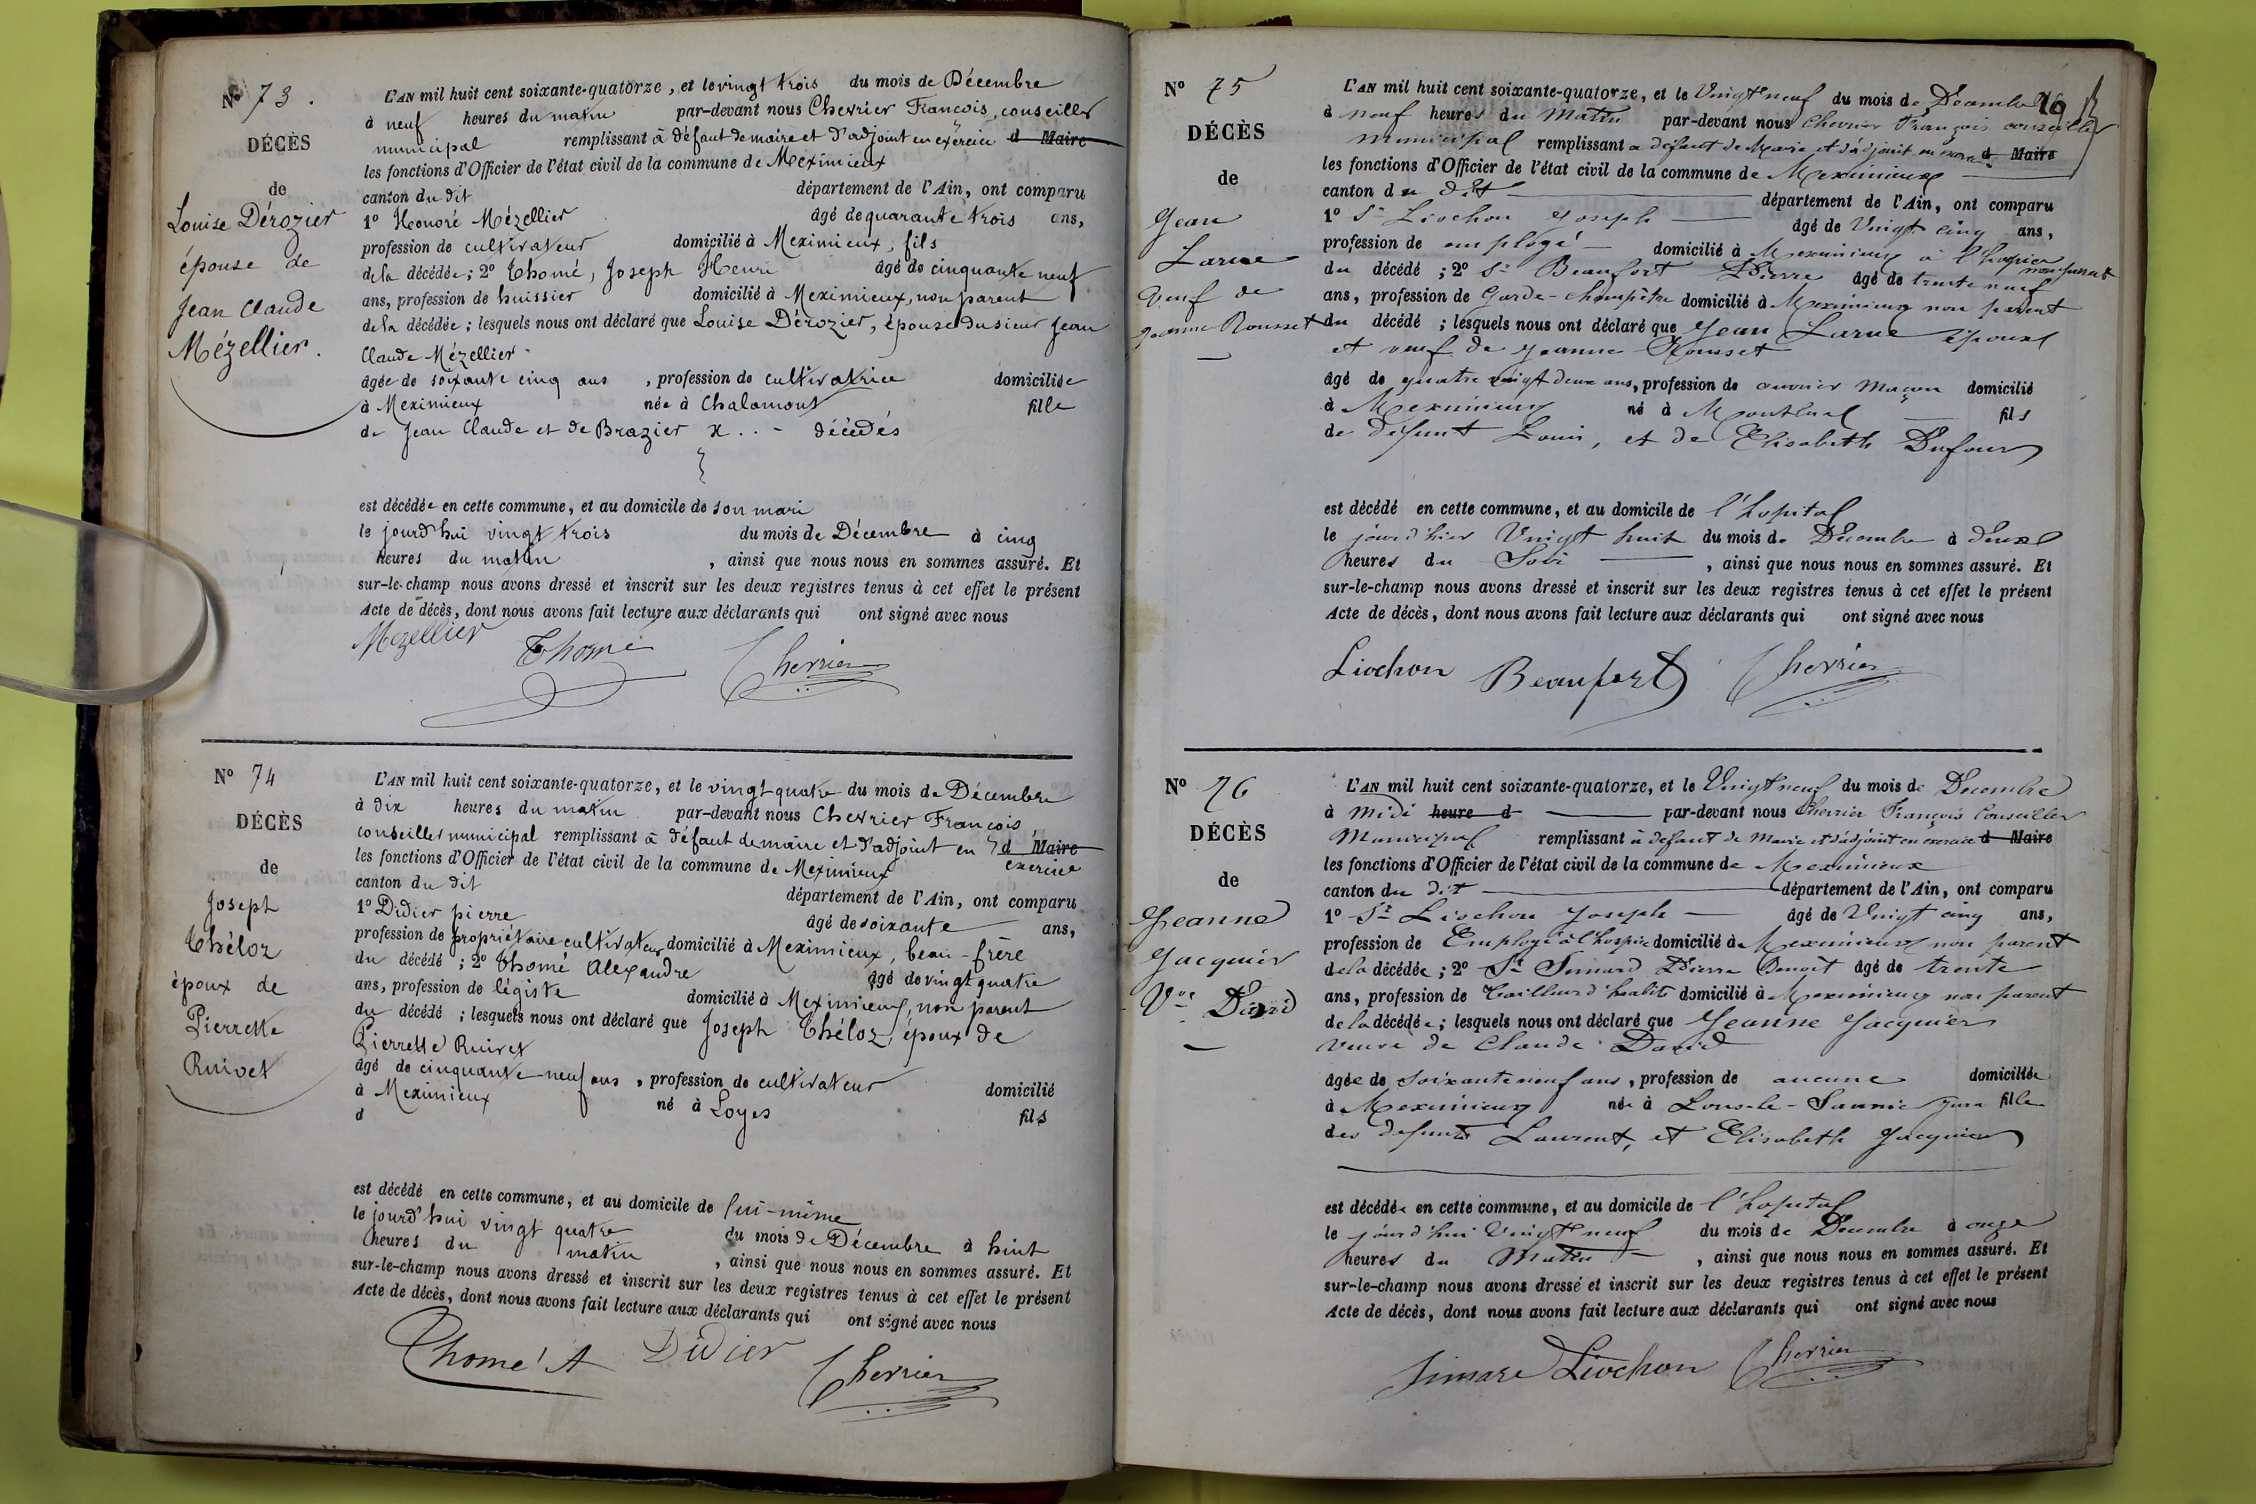 N° 73.
DÉCÈS
de
Louise Dérozier
épouse de
Jean Claude
Mézellier.
L'AN mil huit cent soixante-quatorze, et le vingt trois du mois de Décembre
à neuf heures du matin par-devant nous Chevrier François, conseiller
municipal remplissant à défaut de maire et d'adjoint en exercice d Maire
les fonctions d'Officier de l'état civil de la commune de Meximieux
canton du dit département de l'Ain, ont comparu
1° Honoré Mézellier âgé de quarante trois ans,
profession de cultivateur domicilié à Meximieux, fils
de la décédée; 2° Thomé, Joseph Henri âgé de cinquante neuf
ans, profession de huissier domicilié à Meximieux, non parent
de la décédée; lesquels nous ont déclaré que Louise Dérozier, épouse du sieur Jean
Claude Mézellier
âgée de soixante cinq ans, profession de cultivatrice domiciliée
à Meximieux née à Chalamont fille
de Jean Claude et de Brazier x . . - décédés
est décédée en cette commune, et au domicile de son mari
le jourd'hui vingt trois du mois de Décembre à cinq
heures du matin, ainsi que nous nous en sommes assuré. Et
sur-le-champ nous avons dressé et inscrit sur les deux registres tenus à cet effet le présent
Acte de décès, dont nous avons fait lecture aux déclarants qui ont signé avec nous
Mezellier Thomé Chevrier
N° 74
DÉCÈS
de
Joseph
Théloz
époux de
Pierrette
Ruivet
L'AN mil huit cent soixante-quatorze, et le vingt quatre du mois de Décembre
à dix heures du matin par-devant nous Chevrier François
conseiller municipal remplissant à défaut de maire et d'adjoint en d Maire
exercice
les fonctions d'Officier de l'état civil de la commune de Meximieux
canton du dit département de l'Ain, ont comparu
1° Didier pierre âgé de soixante ans,
profession de propriétaire cultivateur domicilié à Meximieux, beau-frère
du décédé; 2° Thomé Alexandre âgé de vingt quatre
ans, profession de légiste domicilié à Meximieux, non parent
du décédé; lesquels nous ont déclaré que Joseph Théloz, époux de
Pierrette Ruivet
âgé de cinquante-neuf ans, profession de cultivateur domicilié
à Meximieux né à Loyes
d fils
est décédé en cette commune, et au domicile de lui-même
le jourd'hui vingt quatre du mois de Décembre à huit
heures du matin, ainsi que nous nous en sommes assuré. Et
sur-le-champ nous avons dressé et inscrit sur les deux registres tenus à cet effet le présent
Acte de décès, dont nous avons fait lecture aux déclarants qui ont signé avec nous
Thomé A Didier Chevrier
N° 75
DÉCÈS
de
Jean
Larue
Veuf de
Jeanne Rousset
L'AN mil huit cent soixante-quatorze, et le Vingt neuf du mois de Décembre
à neuf heures du Matin par-devant nous Chevrier François conseiller
municipal remplissant à défaut de Maire et d'adjoint en exercice d Maire
les fonctions d'Officier de l'état civil de la commune de Meximieux
canton du dit département de l'Ain, ont comparu
1° Sr Liochon Joseph âgé de Vingt cinq ans,
profession de employé domicilié à Meximieux à l'hospice non parent
du décédé; 2° Sr Beaufort Pierre âgé de trente neuf
ans, profession de Garde-Champêtre domicilié à Meximieux non parent
du décédé; lesquels nous ont déclaré que Jean Larue époux
et veuf de Jeanne Rousset
âgé de quatre vingt deux ans, profession de ouvrier Maçon domicilié
à Meximieux né à Montluel fils
de défunt Louis, et de Elisabeth Dufour
est décédé en cette commune, et au domicile de l'hopital
le jour d'hier Vingt huit du mois de Décembre à deux
heures du Soir, ainsi que nous nous en sommes assuré. Et
sur-le-champ nous avons dressé et inscrit sur les deux registres tenus à cet effet le présent
Acte de décès, dont nous avons fait lecture aux déclarants qui ont signé avec nous
Liochon Beaufort Chevrier
N° 76
DÉCÈS
de
Jeanne
Jacquier
Vve David
L'AN mil huit cent soixante-quatorze, et le Vingt neuf du mois de Décembre
à Midi heure d par-devant nous Chevrier François Conseiller
Municipal remplissant à défaut de Maire et d'adjoint en exercice d Maire
les fonctions d'Officier de l'état civil de la commune de Meximieux
canton du dit département de l'Ain, ont comparu
1° Sr Liochon Joseph âgé de Vingt cinq ans,
profession de Employé à l'hospice domicilié à Meximieux non parent
de la décédée; 2° Sr Simard Pierre Benoit âgé de trente
ans, profession de Tailleur d'habits domicilié à Meximieux non parent
de la décédée; lesquels nous ont déclaré que Jeanne Jacquier
veuve de Claude David
âgée de soixante neuf ans, profession de aucune domiciliée
à Meximieux née à Lons-le-Saunier Jura fille
des défunts Laurent, et Elisabeth Jacquier
est décédée en cette commune, et au domicile de l'hopital
le jourd'hui Vingt neuf du mois de Décembre à onze
heures du Matin, ainsi que nous nous en sommes assuré. Et
sur-le-champ nous avons dressé et inscrit sur les deux registres tenus à cet effet le présent
Acte de décès, dont nous avons fait lecture aux déclarants qui ont signé avec nous
Simard Liochon Chevrier